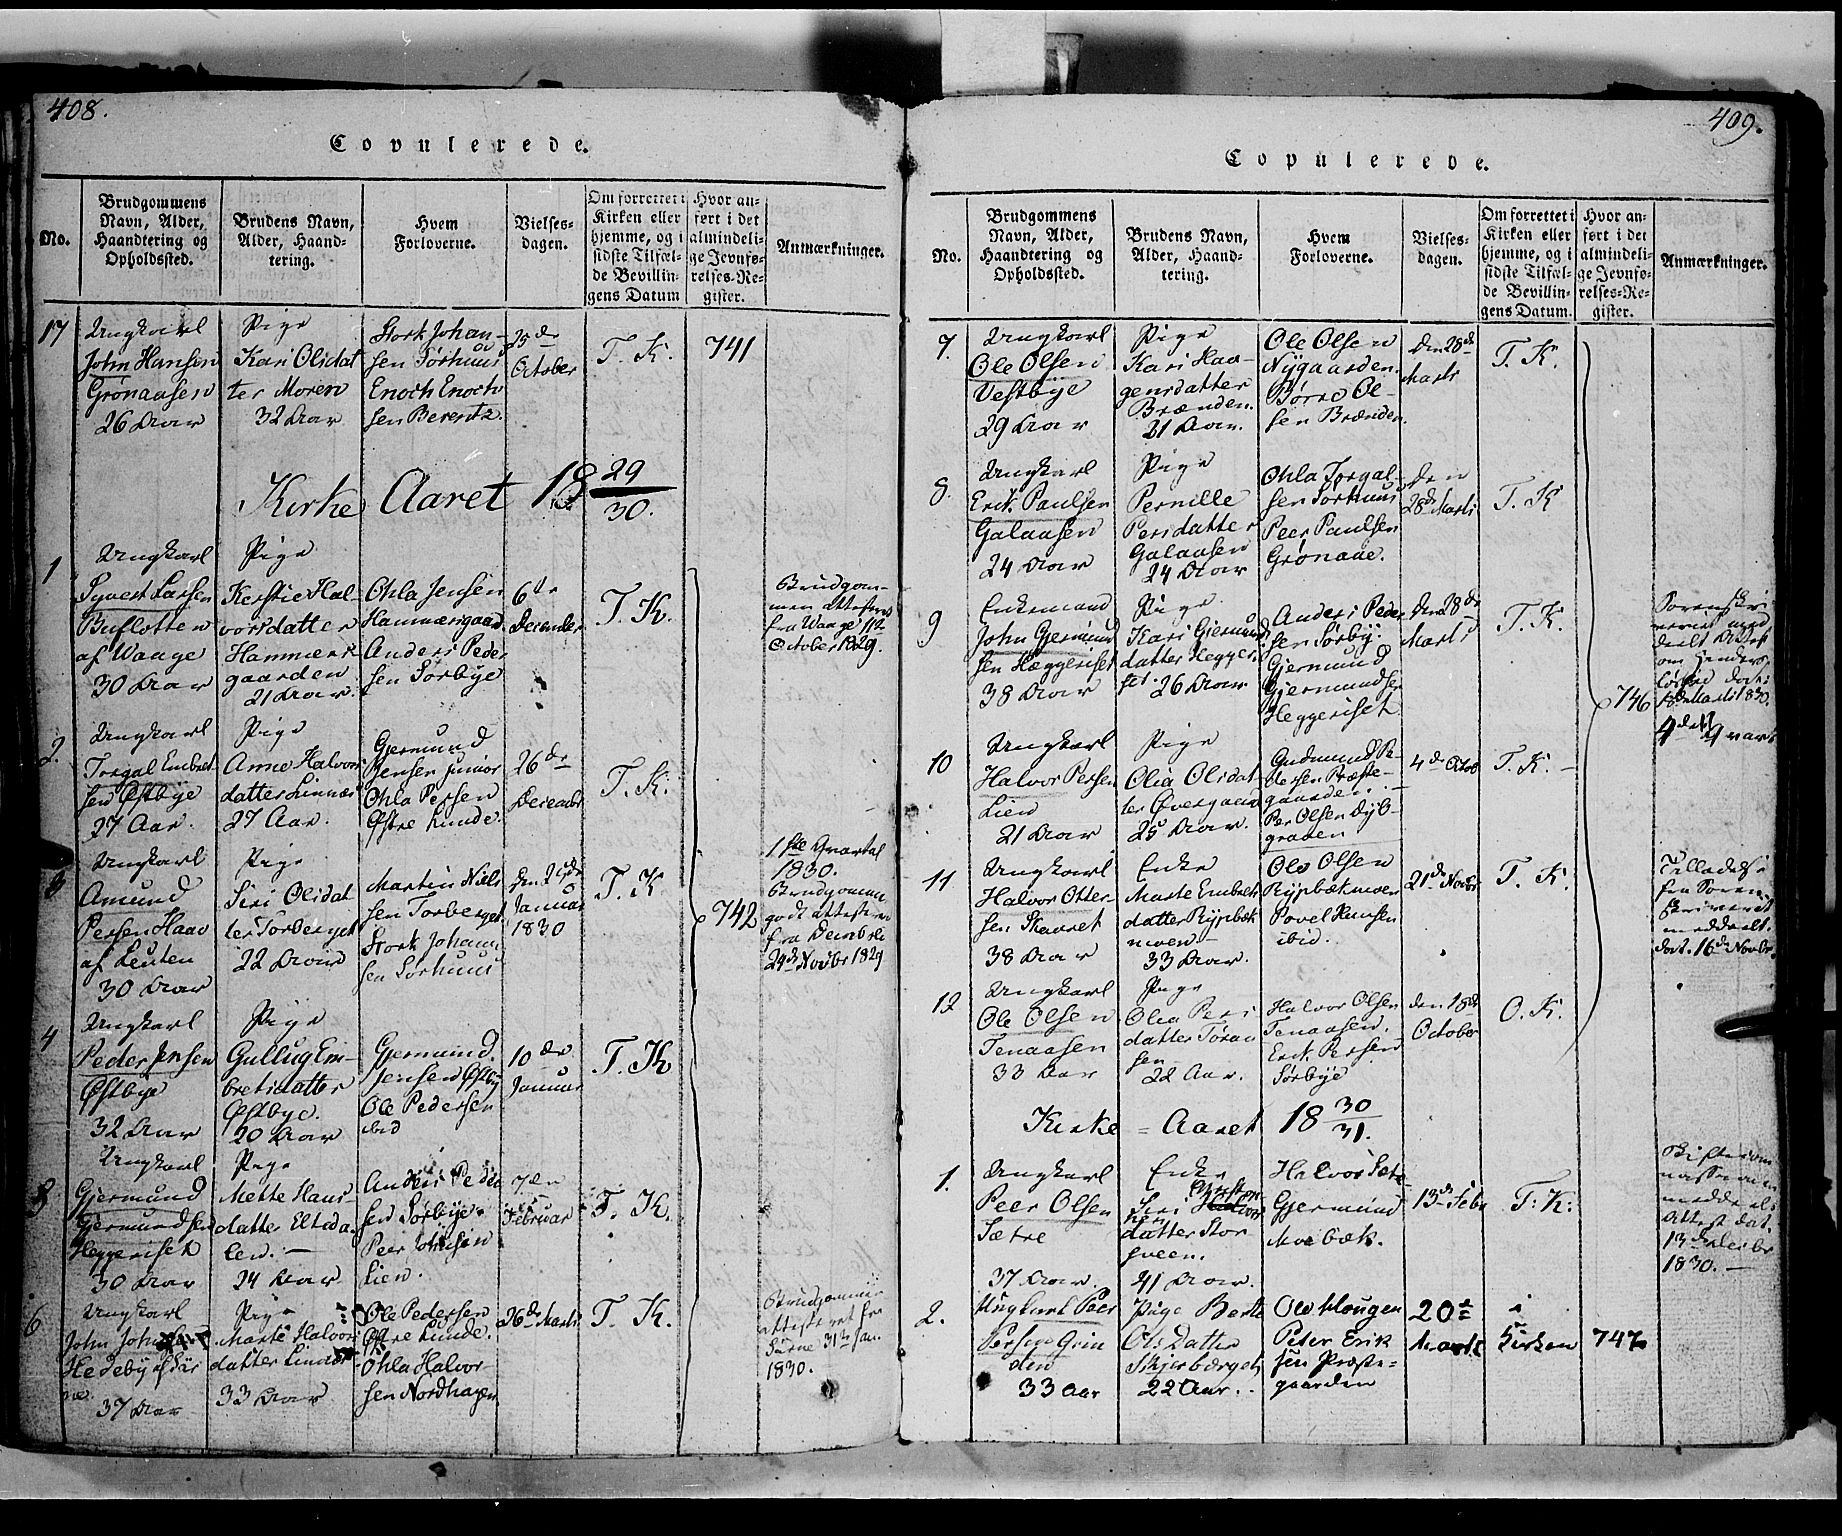 408.
Copulerede.
No.
Brudgommens
Navn, Alder,
Haandtering og
Opholdssted.
Brudens Navn,
Alder, Haand-
tering.
Hvem
Forloverne.
Vielses-
dagen.
Om forrettet i
Kirken eller
hjemme, og i
sidste Tilfæl-
de Bevillin-
gens Datum
Hvor an-
ført i det
almindeli-
ge Jevnfø-
relses-Re-
gister.
Anmærkninger.
17
Ungkarl
John Hansen
Grønaasen
26 Aar
Pige
Kari Olsdat
ter Moren
32 Aar
Stork Johan-
sen Sørhuus
Enoch Enoch
sen Berentz.
25de
October
T. K.
741
Kirke Aaret 18 29/30.
1
Ungkarl
Syvest Larsen
Buflotten
af Waage
30 Aar
Pige
Kerstie Hal-
vorsdatter
Hammers
gaarden
21 Aar.
Ohla Jensen
Hammersgaard
Anders Peder
sen Sørbye
6te
December
T. K.
Brudgom-
men attesteret
fra Waage 11te
October 1829.
2.
Ungkarl
Torgal Embret
sen Østbye
27 Aar.
Pige
Anne Halvors
datter Linnæs
27 Aar.
Gjermund
Jensen Junior
Ohla Persen
Østre Lunde.
26de
December
T. K.
3
Ungkarl
Amund
Persen Haav
af Leuten
30 Aar
Pige
Siri Olsdat
ter Torberget
22 Aar
Martin Niels
sen Torberget
Stork Johann
sen Sørhuus
Januar
1830
T. K.
742
1ste Qvartal
1830.
Brudgomm
godt attesteret
fra
24de Novbr 1829
4
Ungkarl
Peder Jensen
Østbye
32 Aar
Pige
Gullug Em-
bretsdatter
Østbye.
20 Aar
Gjermund
Jensen Østby
Ole Pedersen
ibid
10de
Januar
T. K
5
Ungkarl
Gjermund
Gjermundsen
Heggeriset
30 Aar
Pige
Mette Hans-
datter Eltsda-
len.
24 Aar
Anders Peder
sen Sørbye.
Peer Johnsen
Lien.
7de
Februar
T. K.
6
Ungkarl
John
Hedeby af Sær
næ.
37 Aar
Pige
Marte Halvors
datter Linnæs
33 Aar
Ole Pedersen
Østre Lunde.
Ohla Halvor
sen Nordhagen
26de Marts
T. K.
Brudgommen
attesteret fra
Særne 31te Jan.
1830.
409.
Copulerede.
No.
Brudgommens
Navn, Alder,
Haandtering og
Opholdssted.
Brudens Navn,
Alder, Haand-
tering.
Hvem
Forloverne.
Vielses-
dagen.
Om forrettet i
Kirken eller
hjemme, og i
sidste Tilfæl-
de Bevillin-
gens Datum.
Hvor an-
ført i det
almindeli-
ge Jevnfø-
relses-Re-
gister.
Anmærkninger.
7.
Ungkarl
Ole Olsen
Vestbye
29 Aar
Pige
Kari Haa-
gensdatter
Brænden.
21 Aar.
Ole Olsen
Nygaarden.
Børre Ol-
sen Brænden.
Den 28de
Marts
T. K.
8.
Ungkarl
Erik Paulsen
Galaasen
24 Aar
Pige
Pernille
Persdatter
Galaasen
24 Aar
Ohla Torgal-
sen Sørhuus
Peer Paulsen
Grønaae.
den
28de Marts
T. K
9
Enkemand
John Gjermund
sen Heggeriset
38 Aar
Pige
Kari Gjermund
datter Hegger-
set. 26 Aar
Anders Peder
sen Sørby.
Gjermund
Gjermundsen
Heggeriset
Den 28de
Marts
T. K.
746
Sorenskri
veren med
deelt Attest
om
18de Marts 1830.
4de Qvart
10
Ungkarl
Halvor Persen
Lien
21 Aar
Pige
Olia Olsdat
ter Øvergaard
25 Aar.
Gudmund Pe-
dersen Præste-
gaarden.
Per Olsen Dyb-
graven
4de Octob
T. K.
11
Ungkarl
Halvor Otter-
sen Skavret
38 Aar
Enke
Marte Embrets
datter Rypbæk
moen
33 Aar.
Ole Olsen
Rypbækmoen
Povel Hansen
ibid.
21de Novbr
T. K.
Tilladelse
fra Soren-
skriveren
meddeelt.
dat. 16de Novbr.
12
Ungkarl
Ole Olsen
Tenaasen
33 Aar
Pige
Olia Pers
datter Tøraa
sen
22 Aar.
Halvor Olsen
Tenaasen.
Erik Persen
Sørbye
den 18de
October
O. K.
Kirke - Aaret 18 30/31.
1.
Ungkarl
Peer Olsen
Sætre
37 Aar.
Enke
Siri
datter Stor
sveen.
41 Aar.
Halvor Sætre
Gjermund
Moebæk.
13de Febr
T: K:
Attest dat.
13de Decbr
1830.
2.
Ungkarl Peer
Persen Grin
den
33 Aar
Pige Berte
Ols Datter
Skjerbærget
22 Aar.
Ole Hougen
Peter Erik
sen Præste-
gaarden
20de
Marts
i
Kirken
747